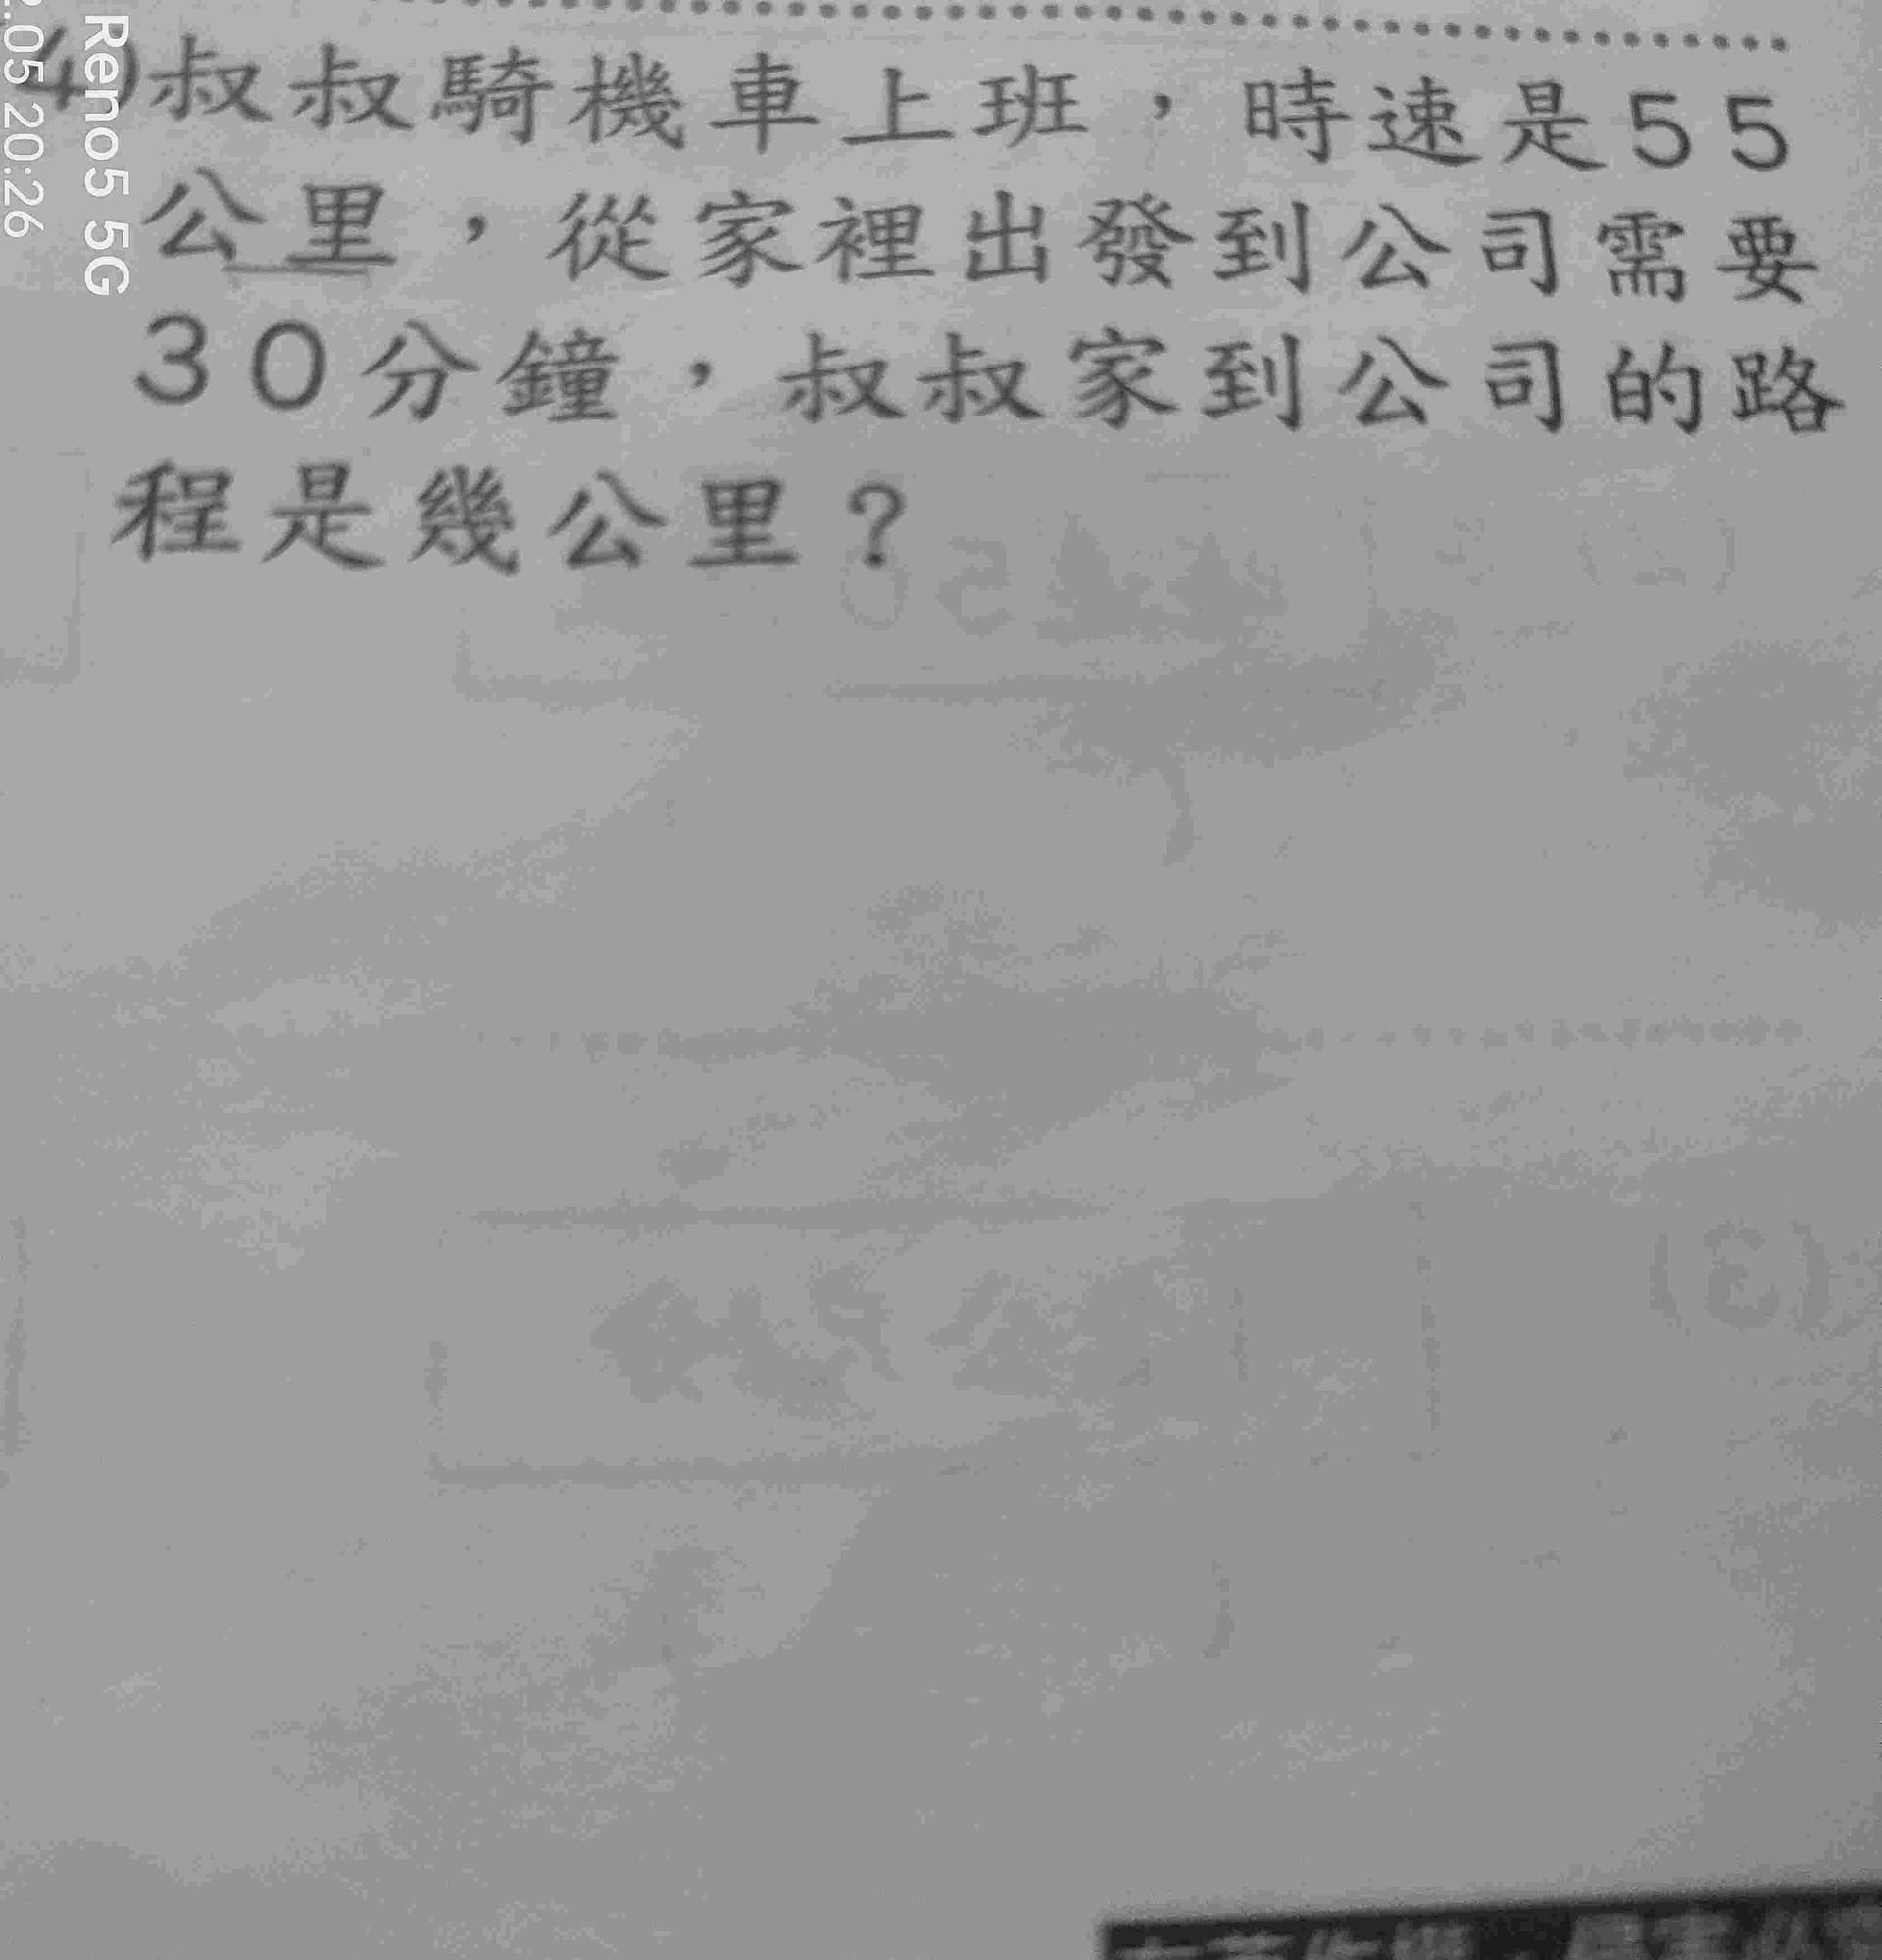 4)叔叔騎機車上班，時速是55
公里，從家裡出發到公司需要
30分鐘，叔叔家到公司的路
程是幾公里？
Reno5 5G
.05 20:26